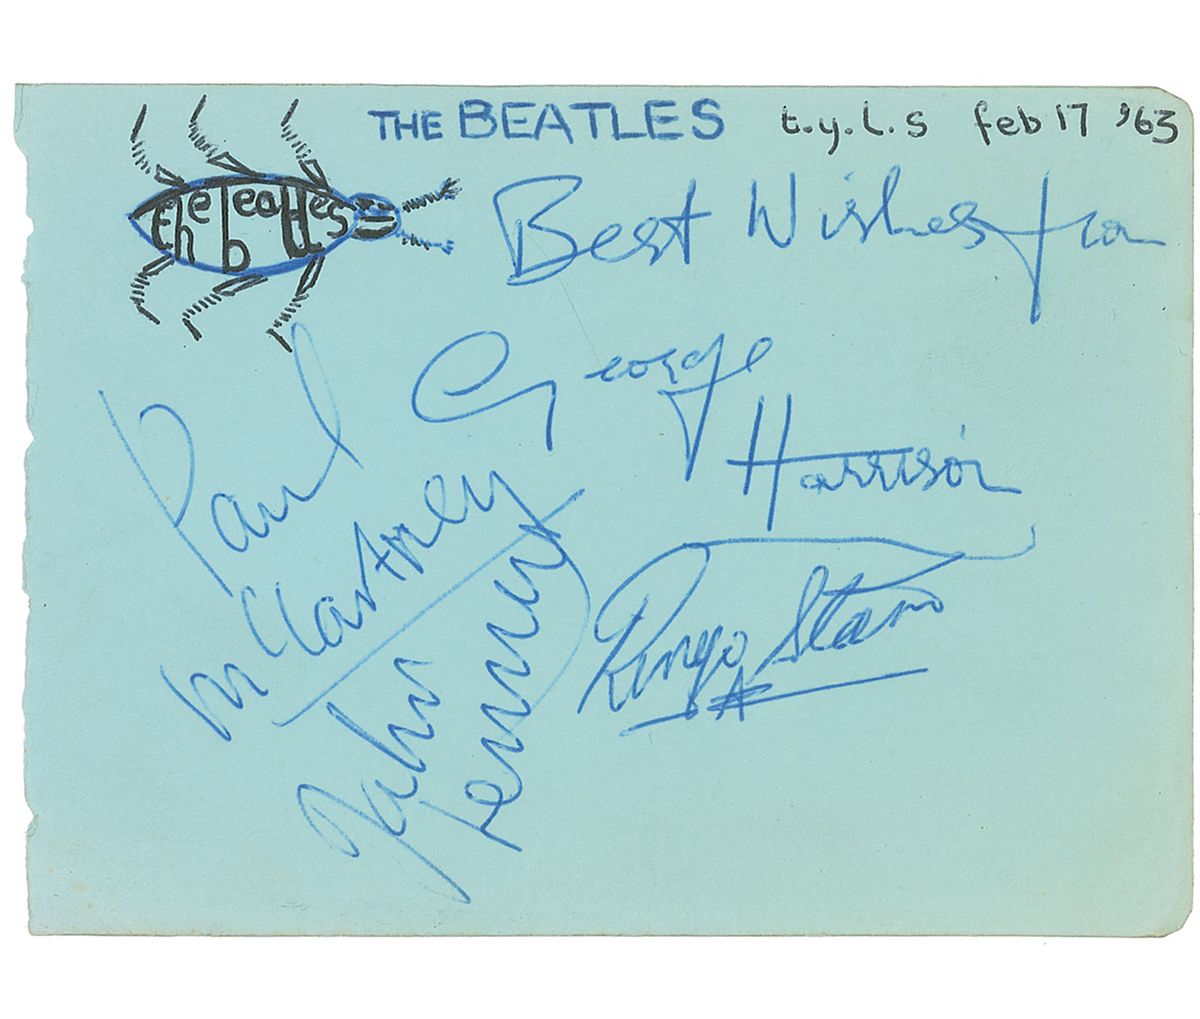 THE BEATLES t.y.l.s feb 17 '63
the beatles
Best Wishes from
George
Harrison
Paul
McCartney
John
Lennon
Ringo Starr